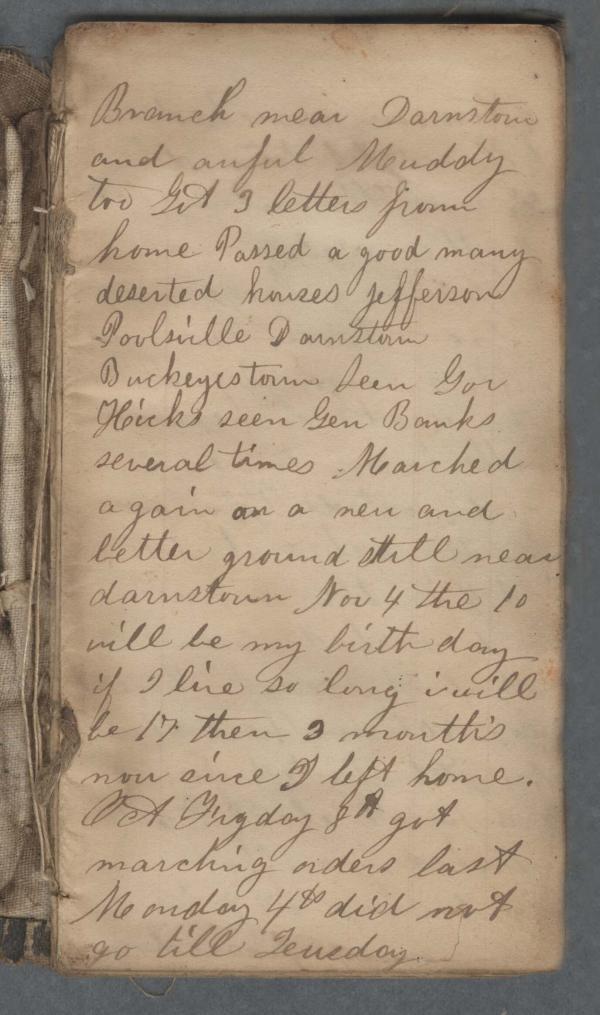 Branch near Darnstown
and auful Muddy
too Got 3 letters from
home Passed a good many
deserted houses jefferson
Poolsville Darnstown
Buckeyestown seen Gov
Hicks seen Gen Banks
several times Marched
again on a new and
better ground still near
darnstown Nov 4 the 10
will be my birth day
if I live so long i will
be 17 then 3 months
now since I left home.
Oct Fryday 8th got
marching orders last
Monday 4th did not
go till Teuseday.